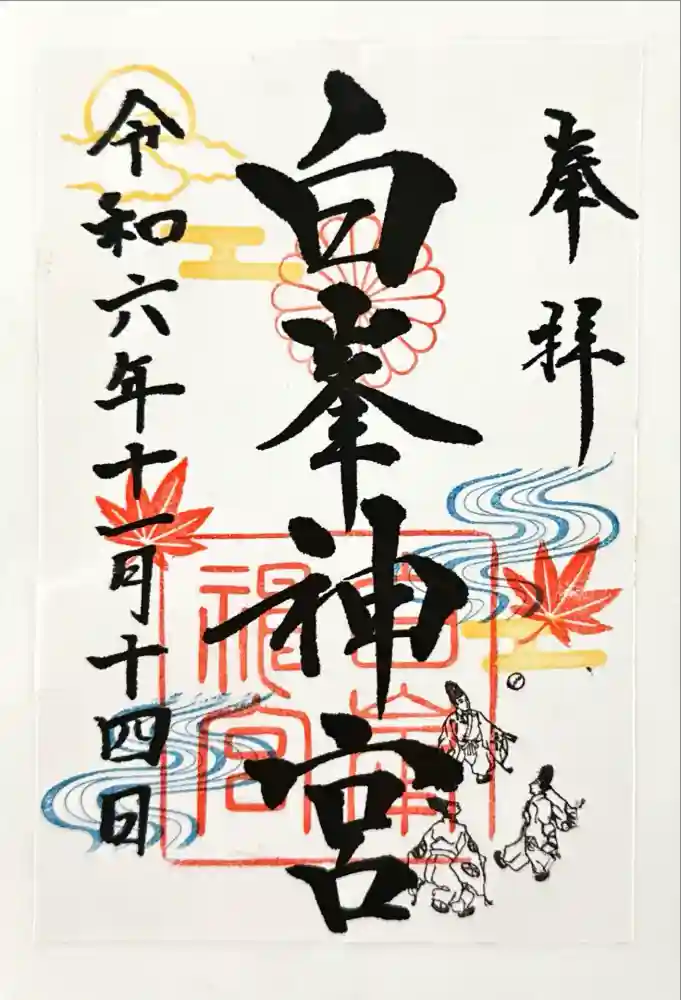 奉拝
白峯神宮
令和六年十一月十四日
白峯神宮